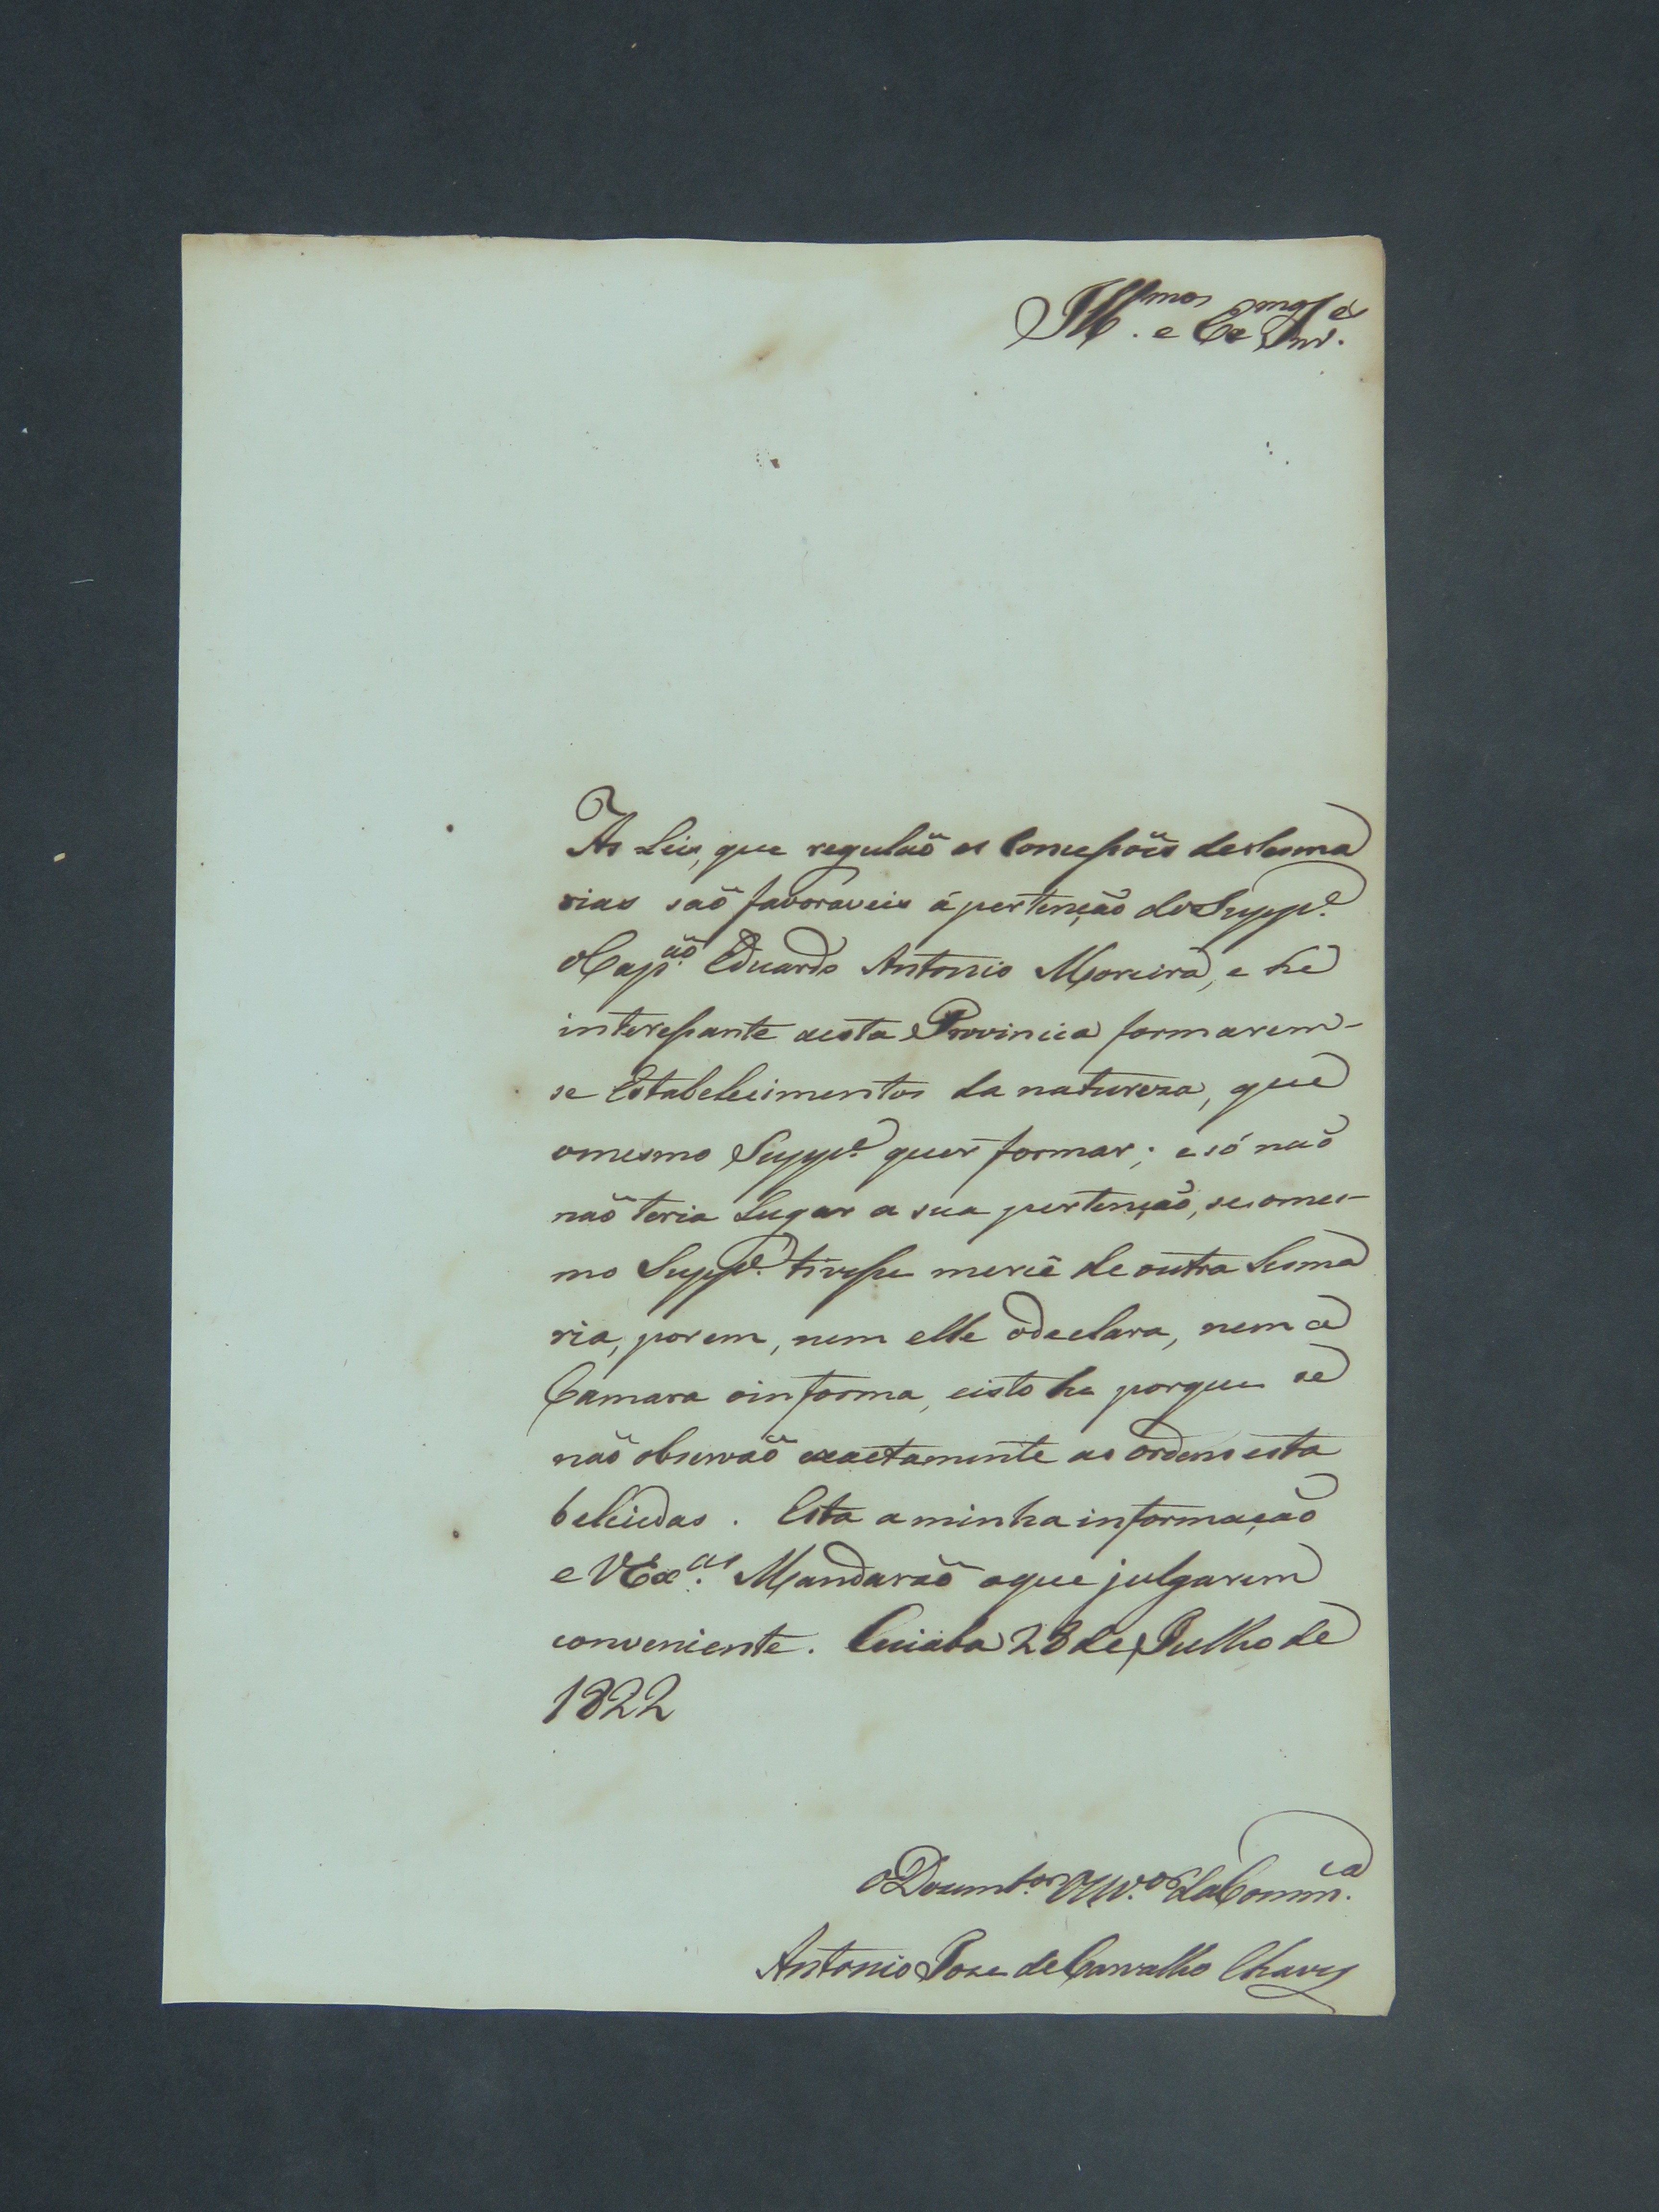 Ill.mos e Ex.mos Snr.es
As Leis, que regulaõ as Concessoẽs de Sesma
rias saõ favoraveis á pertençaõ do Supp.e
o Cap.aõ Eduardo Antonio Moreira, e he
interessante a esta Provincia formarem-
se Estabelecimentos da natureza, que
o mesmo Supp.e quer formar; e só naõ
naõ teria Lugar a sua pertençaõ, se o mes-
mo Supp.e tivesse mercê de outra Sesma
ria, porem, nem elle o declara, nem a
Camara o informa, e isto he porque se
naõ observaõ exactamente as ordens esta
belecidas. Esta a minha informaçaõ
e VEx.as Mandaraõ o que julgarem
conveniente. Cuiaba 28 de Julho de
1822
da Comm.ca
Antonio Jose de Carvalho Chaves